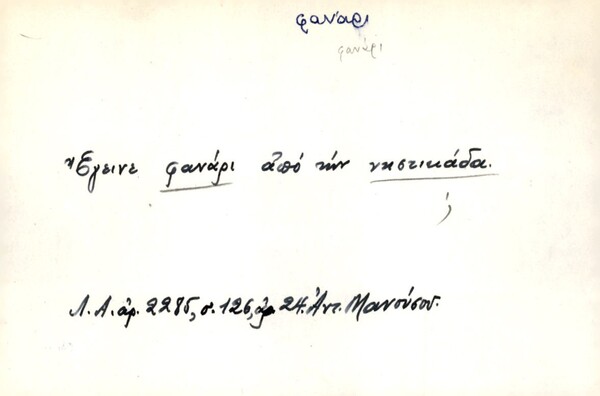 φανάρι
φανάρι
Ἔγεινε φανάρι ἀπό τήν νηστικάδα.
;
Λ.Α. ἀρ. 2285, σ. 126, ἀρ. 24. Ἀντ. Μανούσου.